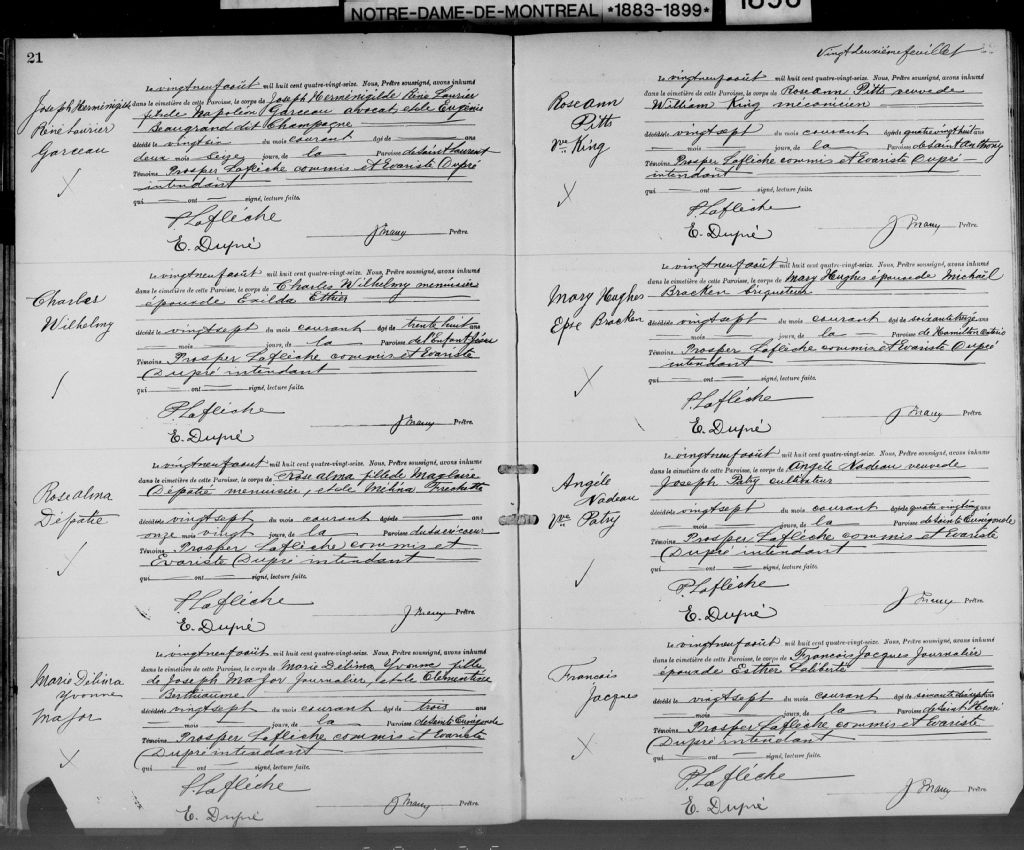 NOTRE-DAME-DE-MONTREAL *1883-1899*
1896
21
Joseph Herménégilde
Réné Laurier
Garceau
Le vingt neuf août mil huit cent quatre-vingt-seize. Nous, Prêtre soussigné, avons inhumé
dans le cimetière de cette Paroisse, le corps de Joseph Herménégilde Réné Laurier
fils de Napoléon Garceau avocat et de Eugénie
Beaugrand dit Champagne
décédé le vingt six du mois courant âgé de ans
deux mois seize jours, de la Paroisse de Saint Laurent
Témoins Prosper Laflèche commis et Evariste Dupré
intendant
qui ont signé, lecture faite.
P. Laflèche
E. Dupré
Prêtre.
Charles
Wilhelmy
Le vingt neuf août mil huit cent quatre-vingt-seize. Nous, Prêtre soussigné, avons inhumé
dans le cimetière de cette Paroisse, le corps de Charles Wilhelmy menuisier
époux de Exilda Ethier
décédé le vingt sept du mois courant âgé de trente huit ans
mois jours, de la Paroisse de l'Enfant Jésus
Témoins Prosper Laflèche commis et Evariste
Dupré intendant
qui ont signé, lecture faite.
P. Laflèche
E. Dupré
Prêtre.
Rose alma
Dépatie
Le vingt neuf août mil huit cent quatre-vingt-seize. Nous, Prêtre soussigné, avons inhumé
dans le cimetière de cette Paroisse, le corps de Rose alma fille de Magloire
Dépatie menuisier, et de Mélina Frechette
décédée vingt sept du mois courant âgée de ans
onze mois vingt jours, de la Paroisse du sacré coeur
Témoins Prosper Laflèche commis et
Evariste Dupré intendant
qui ont signé, lecture faite.
P. Laflèche
E. Dupré
Prêtre.
Marie Délima
Yvonne
Major
Le vingt neuf août mil huit cent quatre-vingt-seize. Nous, Prêtre soussigné, avons inhumé
dans le cimetière de cette Paroisse, le corps de Marie Délima Yvonne fille
de Joseph Major Journalier, et de Clémentine
Berthiaume
décédée vingt sept du mois courant âgé de trois ans
mois jours, de la Paroisse de Sainte Cunégonde
Témoins Prosper Laflèche commis et Evariste
Dupré intendant
qui ont signé, lecture faite.
P. Laflèche
E. Dupré
Prêtre.
Vingt deuxième feuillet
Rose Ann
Pitts
Vve King
Le vingt neuf août mil huit cent quatre-vingt-seize. Nous, Prêtre soussigné, avons inhumé
dans le cimetière de cette Paroisse, le corps de Rose Ann Pitts veuve de
William King mécanicien
décédée vingt sept du mois courant âgée de quatre vingt huit ans
mois jours, de la Paroisse de Saint Anthony
Témoins Prosper Laflèche commis et Evariste Dupré
intendant
qui ont signé, lecture faite.
P. Laflèche
E. Dupré
Prêtre.
Mary Hughes
Epse Bracken
Le vingt neuf août mil huit cent quatre-vingt-seize. Nous, Prêtre soussigné, avons inhumé
dans le cimetière de cette Paroisse, le corps de Mary Hughes épouse de Michaël
Bracken briqueteur
décédée vingt sept du mois courant âgé de soixante treize ans
mois jours, de la Paroisse de Hamilton Ontario
Témoins Prosper Laflèche commis et Evariste Dupré
intendant
qui ont signé, lecture faite.
P. Laflèche
E. Dupré
Prêtre.
Angéle
Nadeau
Vve Patry
Le vingt neuf août mil huit cent quatre-vingt-seize. Nous, Prêtre soussigné, avons inhumé
dans le cimetière de cette Paroisse, le corps de Angéle Nadeau veuve de
Joseph Patry cultivateur
décédée vingt sept du mois courant âgée de quatre vingt cinq ans
mois jours, de la Paroisse de Sainte Cunégonde
Témoins Prosper Laflèche commis et Evariste
Dupré intendant
qui ont signé, lecture faite.
P. Laflèche
E. Dupré
Prêtre.
Francois
Jacques
Le vingt neuf août mil huit cent quatre-vingt-seize. Nous, Prêtre soussigné, avons inhumé
dans le cimetière de cette Paroisse, le corps de Francois Jacques Journalier
époux de Esther Laliberté
décédé le vingt sept du mois courant âgé de soixante dix sept ans
mois jours, de la Paroisse de Saint Henri
Témoins Prosper Laflèche commis et Evariste
Dupré intendant
qui ont signé, lecture faite.
P. Laflèche
E. Dupré
Prêtre.